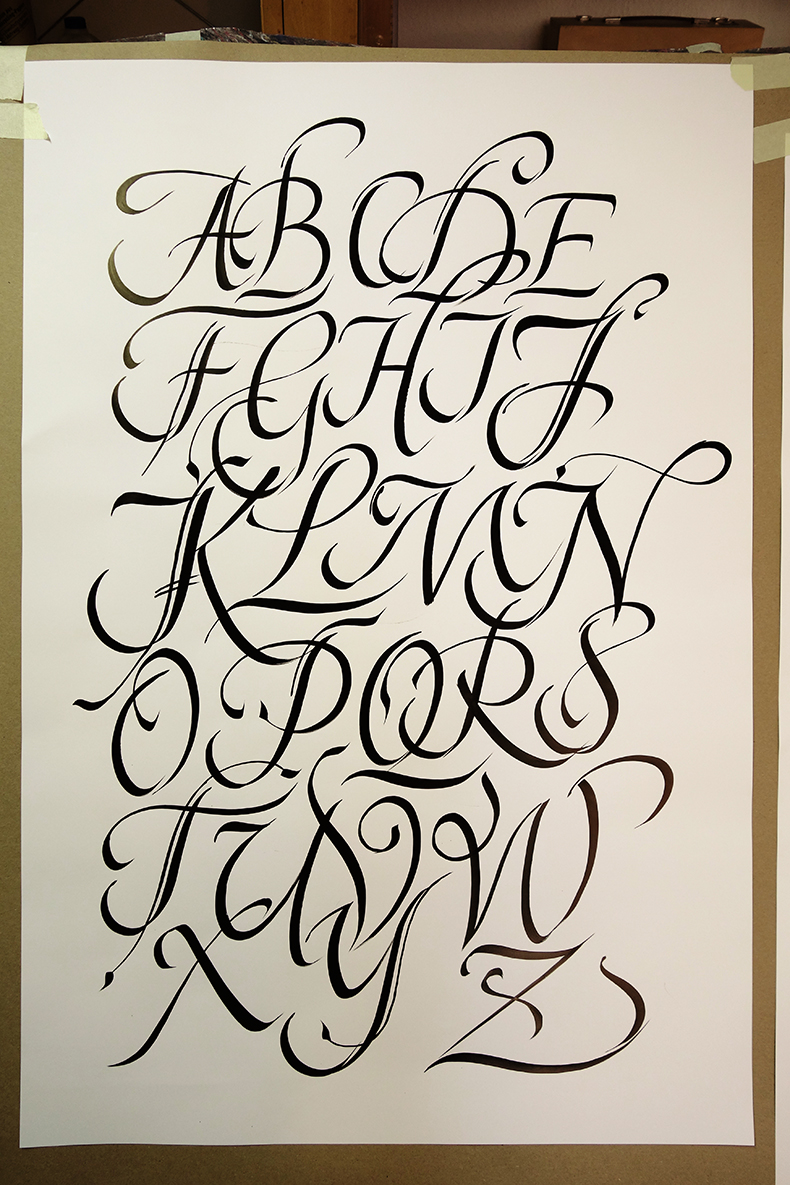 ABCDE
FGHIJ
KLMN
OPQRS
TUVW
XYZ